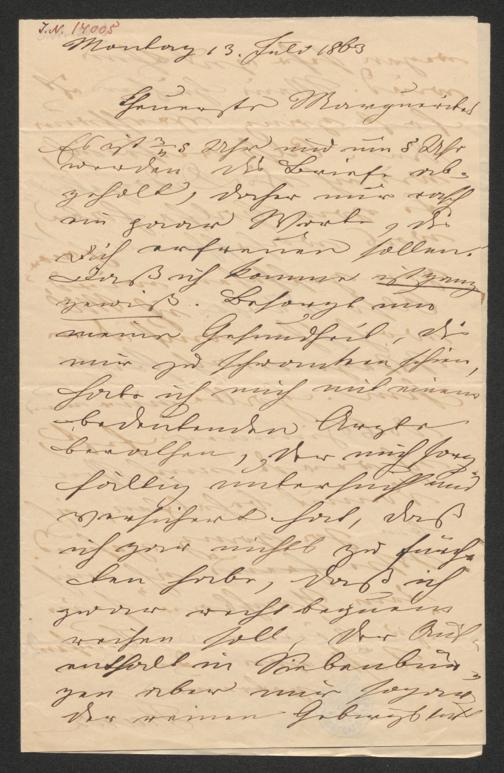 J.N. 14005
Montag 13. Juli 1863
Theuerste Marguerite!
Es ist ¾ 5 Uhr und um 5 Uhr
werden die Briefe ab-
geholt, daher nur rasch
ein paar Worte, die
Dich erfreuen sollen.
Daß ich komme ist ganz
gewiß. Besorgt um
meine Gesundheit, die
mir zu schwanken schien,
habe ich mich mit einem
bedeutenden Arzte
berathen, der mich sorg
fältig untersucht und
versichert hat, daß
ich gar nichts zu fürch
ten habe, daß ich
zwar recht bequem
reisen soll, der Auf
enthalt in Siebenbür
gen aber mir sogar
der reinen Gebirgsluft